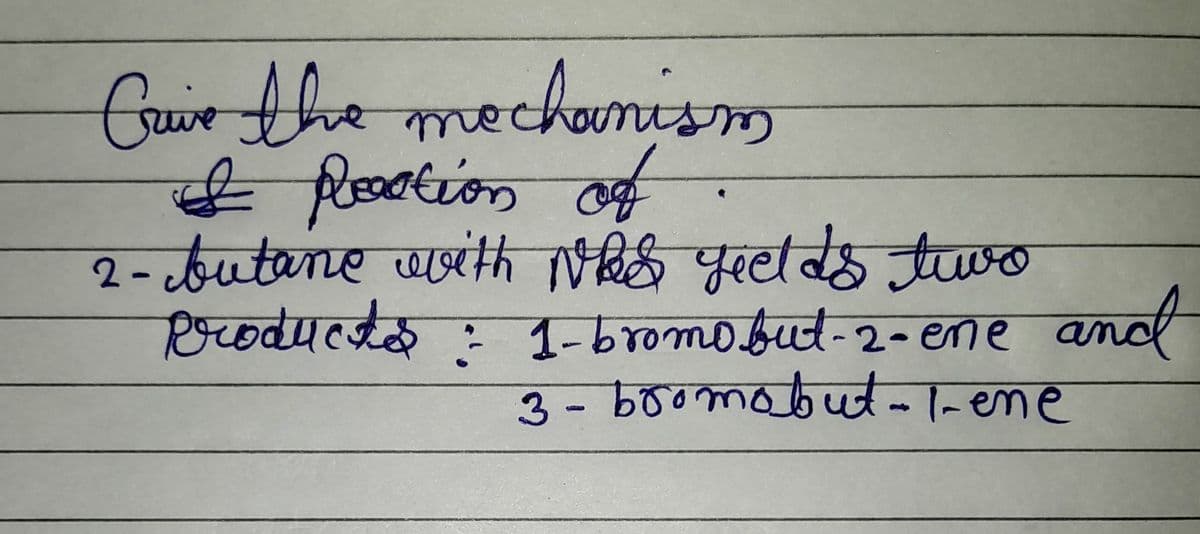 Give the mechanism
of Reaction of .
2-butane with NBS yields two
products : 1-bromobut-2-ene and
3-bromobut-1-ene